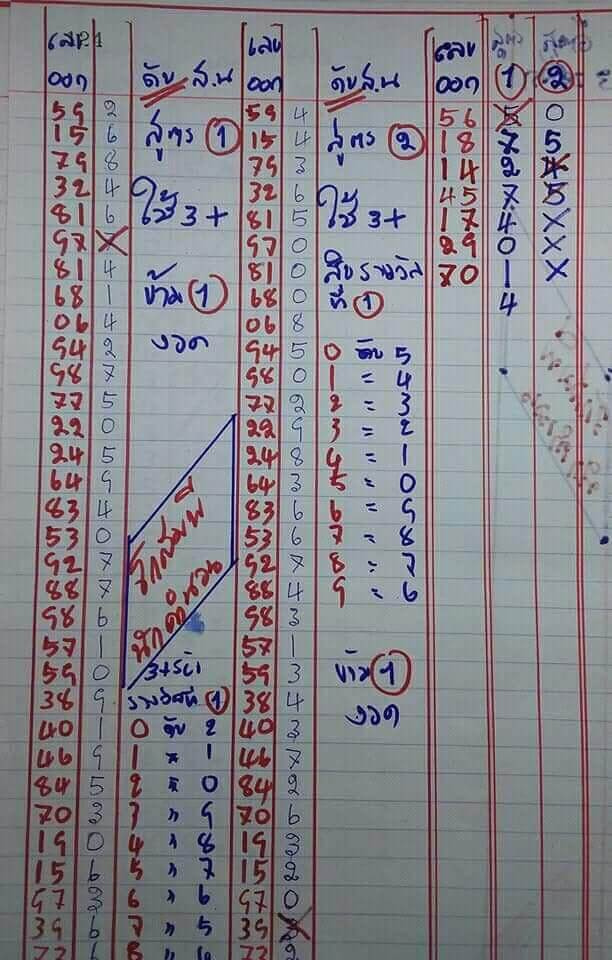 เลข เลข เลข
ออก ดับ ส.น ออก ดับ ส.น ออก 1 2
59 2 สูตร 1 59 4 สูตร 2 56 5 0
15 6 15 4 18 7 5
79 8 79 3 14 2 4
32 4 ใช้ 3+ 32 6 ใช้ 3+ 45 7 5
81 6 81 5 17 4 X
97 97 0 29 0 X
81 4 ข้าม 1 81 0 สิบรางวัล 70 1 X
68 1 68 0 ที่ 1 4
06 4 งวด 06 8
94 2 94 5 0 ดับ 5
98 7 98 0 1 = 4
77 5 77 2 2 = 3
22 0 22 9 3 = 2
24 5 24 8 4 = 1
64 9 64 3 5 = 0
83 4 83 6 6 = 9
53 0 53 6 7 = 8
92 7 92 7 8 = 7
88 7 88 4 9 = 6
98 6 98 3
57 1 57 1
59 0 59 3 ข้าม 1
38 9 รางวัลที่ 1 38 4 งวด
40 1 0 ดับ 2 40 3
46 9 1 " 1 46 7
84 5 2 " 0 84 2
70 3 3 " 9 70 6
19 0 4 " 8 19 3
15 6 5 " 7 15 2
97 3 6 " 6 97 0
39 6 7 " 5 39